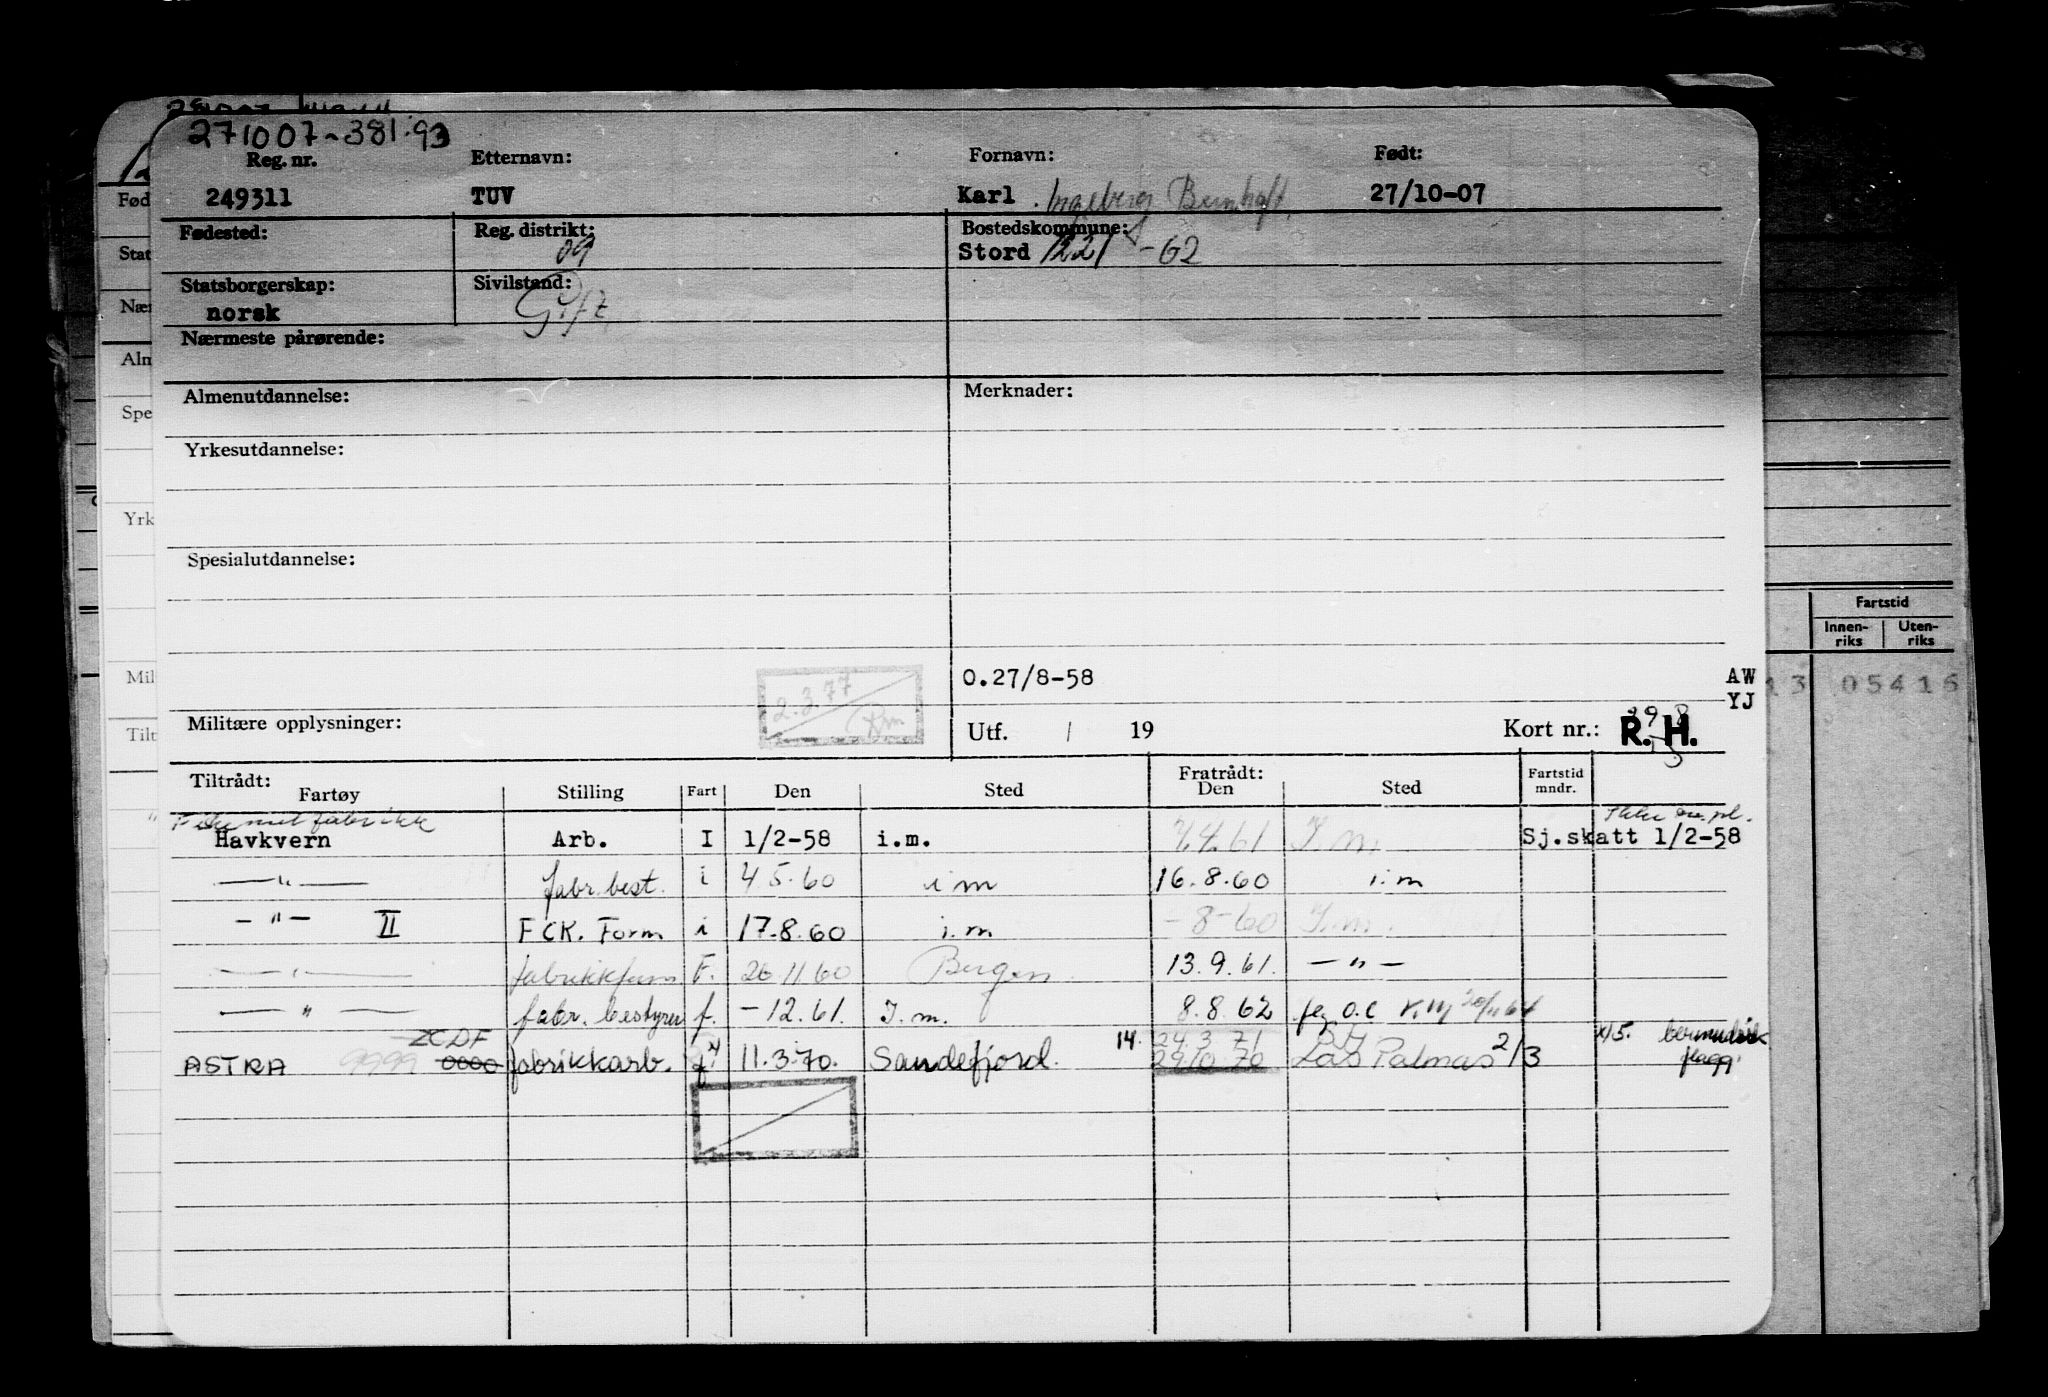 271007-38193
Reg. nr. Etternavn: Fornavn: Født:
249311 TUV Karl 27/10-07
Fødested: Reg. distrikt: Bostedskommune:
09 Stord 1221 -62
Statsborgerskap: Sivilstand:
norsk Gift
Nærmeste pårørende:
Almenutdannelse: Merknader:
Yrkesutdannelse:
Spesialutdannelse:
Fartstid
Innen-riks Uten-riks
13 05416
0.27/8-58 AW
YJ
2.3.77
Militære opplysninger: Utf. / 19 Kort nr.: R. H.
Tiltrådt: Fratrådt: Fartstid
Fartøy Stilling Fart Den Sted Den Sted mndr.
Havkvern Arb. I 1/2-58 i.m. 7.4.61 I.m Sj.skatt 1/2-58
—"— fabr. best. i 4.5.60 i m 16.8.60 i.m
—"— II FCK. Form i 17.8.60 i.m -8-60 I.m.
—"— F. 26.11.60 Bergen 13.9.61. —"—
—"— fabr. bestyrer f. -12.61. I.m. 8.8.62
ZCDF 14. 24.3.71 2/3
ASTRA 9999 0000 fabrikkarb. f 11.3.70. Sandefjord. 29.10.70 Las Palmas x/5. flagg
Fød
Stat
Nær
Alm
Spe
Yrk
Mil
Tilt